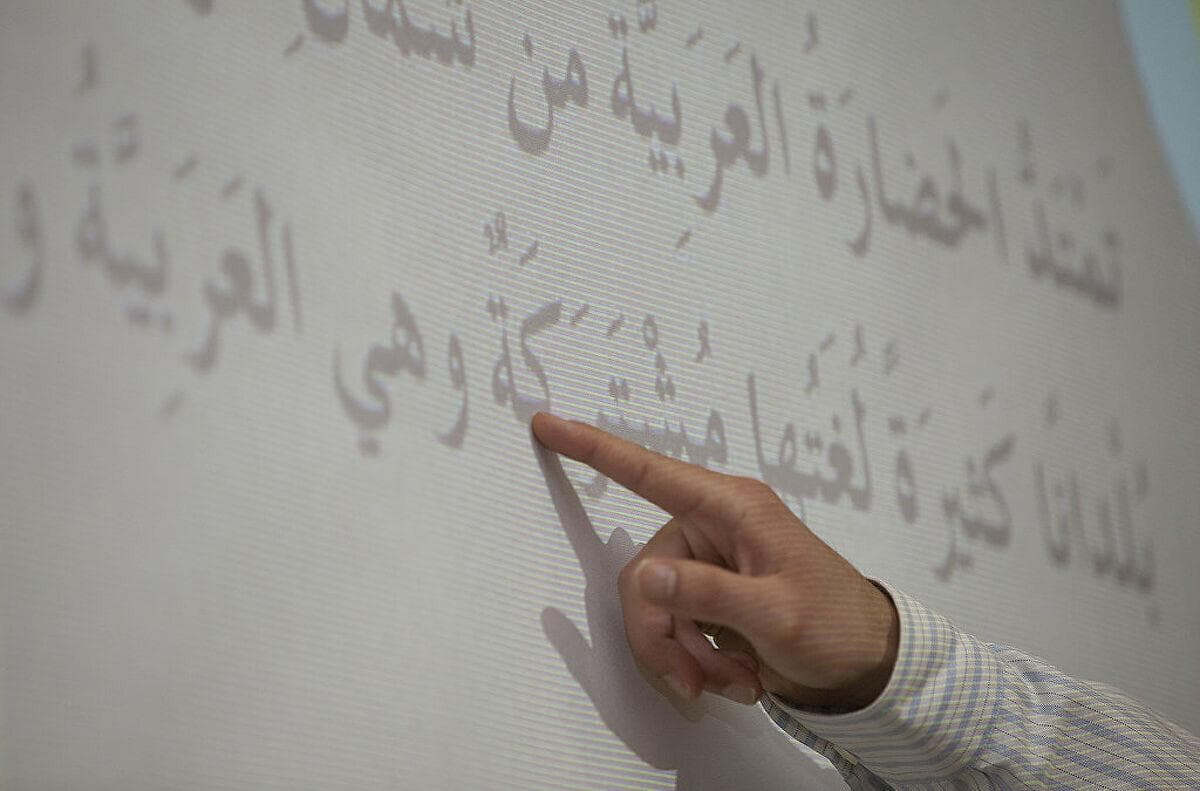 تَمْتَدُّ الحَضَارَةُ العَرَبِيَّةُ مِن شَمَالِ
بُلْدَانًا كَثِيرَةً لُغَتُهَا مُشْتَرَكَةٌ وهي العَرَبِيَّةُ و